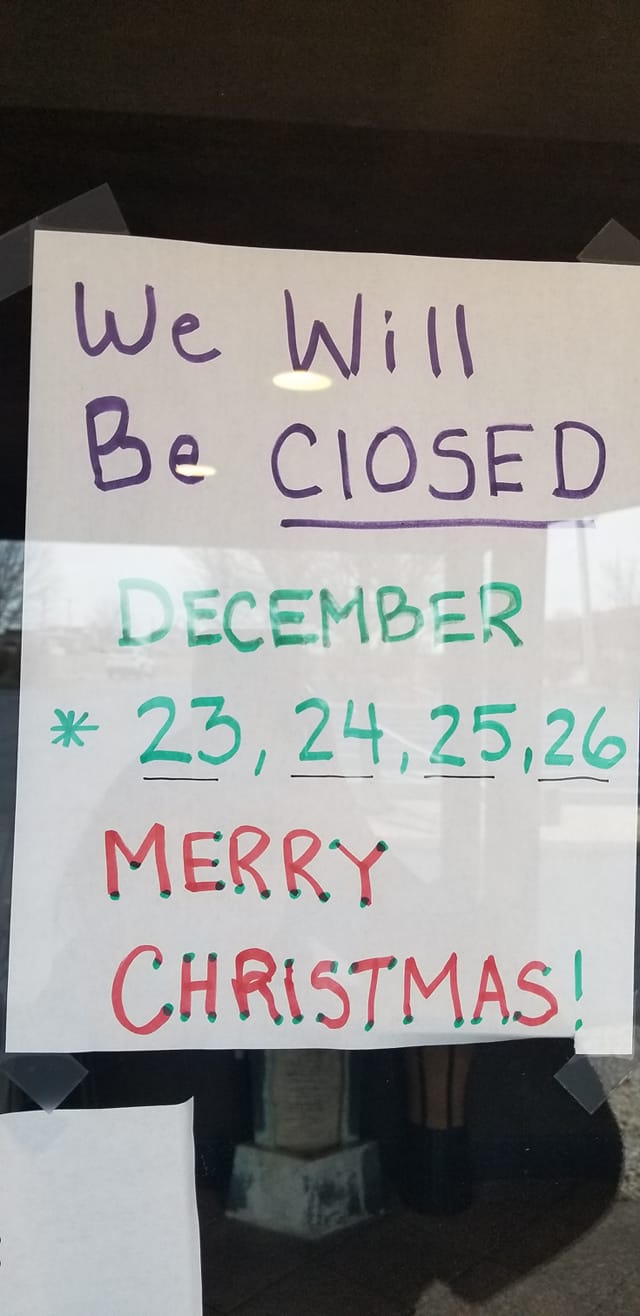 We Will
Be ClOSED
DECEMBER
* 23, 24, 25, 26
MERRY
CHRISTMAS!